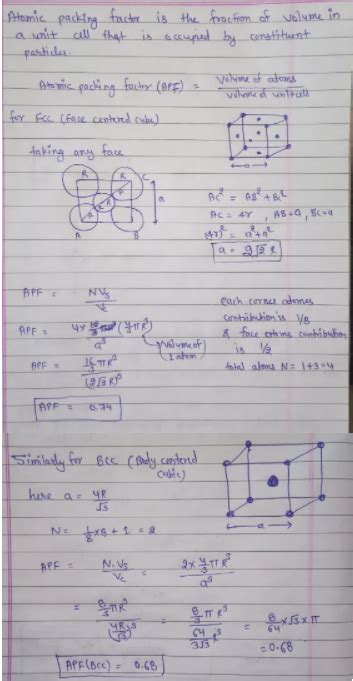 Atomic packing factor is the fraction of volume in
a unit cell that is occupied by constituent
particles.
Atomic packing factor (APF) = Volume of atoms / volume of unit cell
for FCC (Face centered cube)
taking any face
a
R R C
R R
A B
a
AC² = AB² + BC²
AC = 4r , AB = a, BC = a
(4r)² = a² + a²
a = 2√2 R
APF = NVs / Vc
APF = 4 × (4/3 πR³) / a³
Volume of
1 atom
APF = 16/3 πR³ / (2√2 R)³
APF = 0.74
each corner atoms
contribution is 1/8
& face atoms contribution
is 1/2
total atoms N = 1+3=4
Similarly for BCC (Body centered
cubic)
here a = 4R/√3
N = 1/8 × 8 + 1 = 2
a
APF = N.Vs / Vc = 2 × 4/3 πR³ / a³
= 8/3 πR³ / (4R/√3)³ = 8/3 πR³ / 64/3√3 R³ = 8/64 × √3 × π
= 0.68
APF(BCC) = 0.68